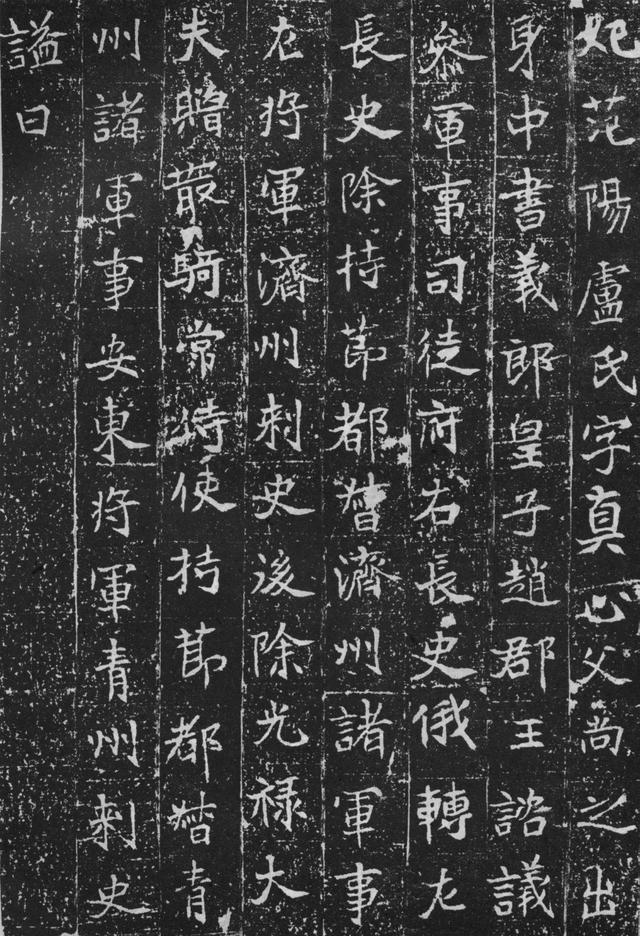 妃范陽盧氏字真心父尚之出
身中書義郎皇子趙郡王諮議
叅軍事司徒府右長史俄轉左
長史除持莭都督濟州諸軍事
左将軍濟州刺史後除光禄大
夫贈散騎常侍使持莭都督青
州諸軍事安東将軍青州刺史
謚曰